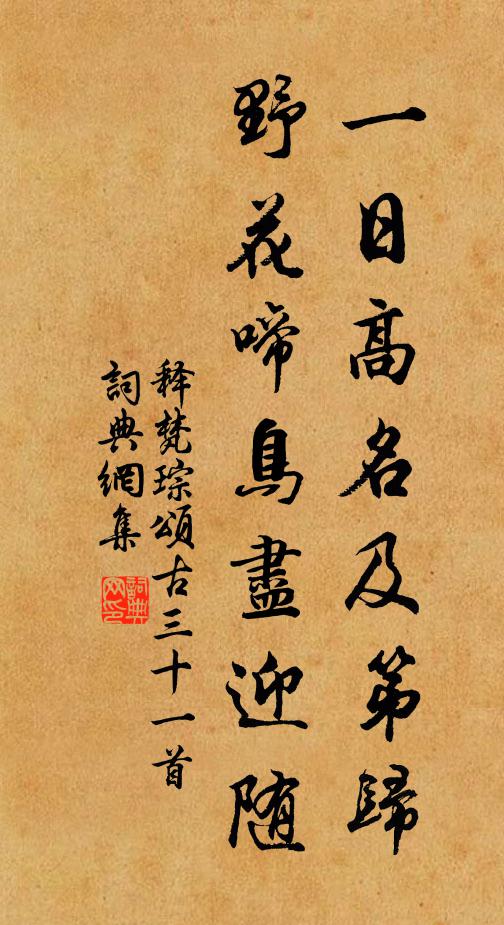 一日高名及第歸
野花啼鳥盡迎随
释梵琮頌古三十一首
詞典網集
詞典網印